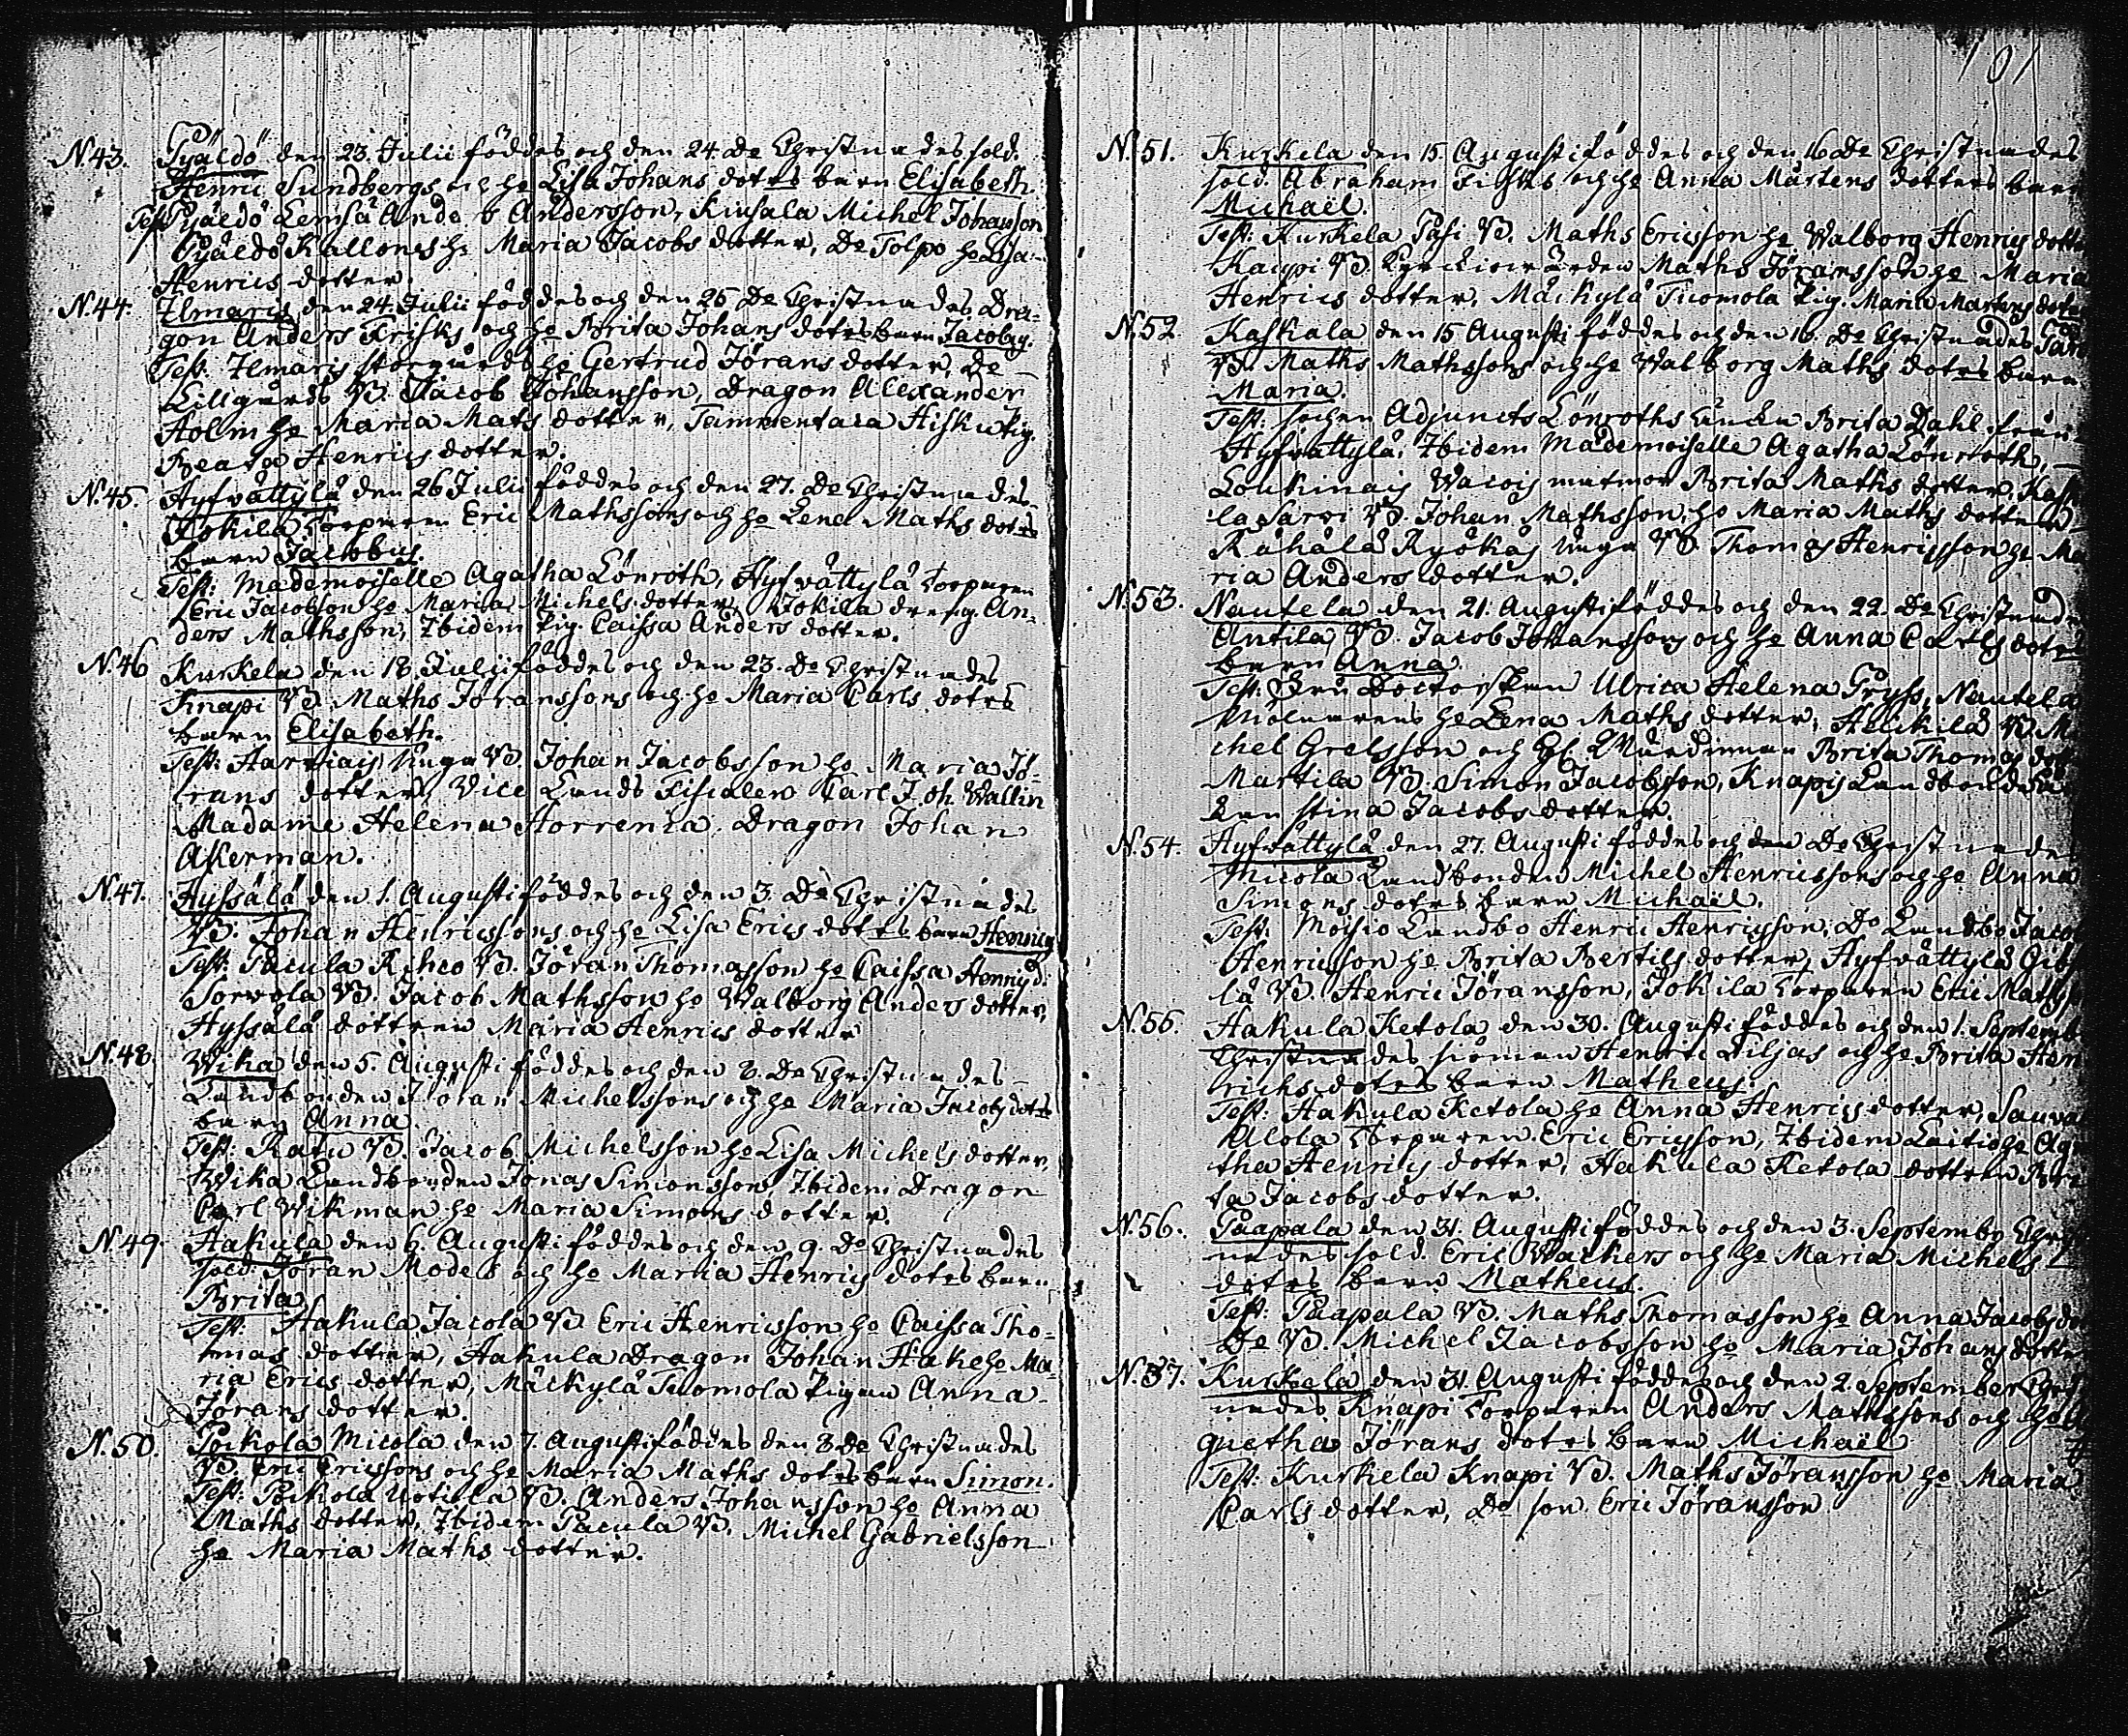 N.43. Pyäldö den 23. Julii föddes och den 24. De Christnades sold.
Henric Sundbergs och ho Lisa Johans dotrs barn Elisabeth
Test: Pyäldö Anders Andersson, Kiusala Michel Johansson
Pyäldö Kallones ho Maria Jacobs dotter, De Tolpo ho Lisa
Henrics dotter.
N.44. Ilmaris den 24. Julii föddes och den 25 De Christnades Dra-
gon Anders Frisks och ho Brita Johans dotrs barn Jacobus.
Test: Ilmaris storgårds ho Gertrud Jörans dotter, De
Lillgårds B. Jacob Johansson, Dragon Alexander
Holm ho Maria Mats dotter, Tammentaca Hisku pig.
Beata Henrics dotter.
N.45. Hyfvättylä den 26 Julii föddes och den 27. De Christnades
Jokila Torparen Eric Mathssons och ho Lena Maths dotrs
barn Jacobus.
Test: Mademoiselle Agatha Lönroth, Hyfvättylä Torparen
Eric Jacobson ho Maria Michels dotter, Jokila dreng An-
ders Mathsson, Ibidem pig. Caissa Anders dotter.
N.46 Kurkela den 18. Julii föddes och den 23. De Christnades
Knapi B. Maths Jöranssons och ho Maria Carls dotrs
barn Elisabeth.
Test: Harviais Unga B. Johan Jacobsson ho Maria Jö-
rans dotter, Vice Lands Fiscalen Carl Joh Wallin
Madame Helena Horrenia. Dragon Johan
Åkerman.
N.47. Hyssälä den 1. Augusti föddes och den 3. De Christnades
B. Johan Henricssons och ho Lisa Erics dotrs barn Henricus
Test: Pacula Rihco B. Jöran Thomasson ho Caissa Henrics d.
Sorvola B. Jacob Mathsson ho Walborg Anders dotter,
Hyssälä dottren Maria Henrics dotter
N.48. Wika den 5. Augusti föddes och den 8. De Christnades
Landbonden Jöran Michelssons och ho Maria Jacobs dotrs
barn Anna.
Test: Ratu B. Jacob Michelsson ho Lisa Michels dotter,
Wika Landbonden Jonas Simonsson, Ibidem Dragon
Carl Wikman ho Maria Simons dotter.
N.49. Hakula den 6. Augusti föddes och den 9. De Christnades
sold. Jöran Modes och ho Maria Henrics dotrs barn
Brita.
Test: Hakula Jacola B. Eric Henricsson ho Caissa Tho-
mas dotter, Hakula Dragon Johan Hake ho Ma-
ria Erics dotter, Mäckylä Tuomola Pigan Anna
Jörans dotter.
N.50. Pockola Micola den 7. Augusti föddes den 8 De Christnades
B. Eric Ericssons och ho Maria Maths dotrs barn Simon.
Test: Pockola Uotila B. Anders Johansson ho Anna
Maths dotter, Ibidem Pacula B. Michel Gabrielsson
ho Maria Maths dotter.
101
N.51. Kurkela den 15. Augusti föddes och den 16 De Christnades
sold. Abraham Fisks och ho Anna Mårtens dotters barn
Michaël.
Test: Kurkela Pasi B. Maths Ericsson ho Walborg Henrics dotter
Kaupi B. Kyrckiowärden Maths Jöransson ho Maria
Henrics dotter, Mäckylä Tuomola Pig. Maria Martens dotter
N.52. Kaskala den 15 Augusti föddes och den 16. De Christnades
B. Maths Mathssons och ho Walborg Maths dotrs barn
Maria.
Test: sochen Adjuncts Lönroths Brita Dahl från
Hyfvättylä. Ibidem Mademoiselle Agatha Lönroth,
Loukinais Wacois matmor Brita Maths dotter. Kask
la Sarvi B. Johan Mathsson, ho Maria Maths dotter
Råhålä Ryökäs Unga B. Thomas Henricsson ho Ma
ria Anders dotter.
N.53. Nautela den 21. Augusti föddes och den 22. De Christnade
Antila B. Jacob Johanssons och ho Anna Carls dotrs
barn Anna.
Test: Fru Doctorskan Ulrica Helena Pryss, Nautela
Mölnarens ho Lena Maths dotter, Heickilä B. Mi
chel Grelsson och Brita Thomas dot
Martila B. Simon Jacobson, Knapis Landbonde
Stina Jacobs dotter.
N.54. Hyfvättylä den 27. Augusti föddes och den De Christnades
Micola Landbonden Michel Henricssons och ho Anna
Simons dotrs barn Michaël.
Test: Moisio Landbo Henric Henricsson, Do Landbo Jacob
Henricsson ho Brita Bertils dotter, Hyfvättylä
lä B. Henric Jöransson, Jokila Torparen Eric Maths
N.55. Hakula Ketola den 30. Augusti föddes och den 1. Septemb
Christnades siöman Henric Liljas och ho Brita Hen
richs dotrs barn Matheus.
Test: Hakula Ketola ho Anna Henrics dotter, Sauva
Alola Torparen Eric Ericsson, Ibidem Laitio ho Ag
tha Henrics dotter, Hakula Ketola dottren Bri
ta Jacobs dotter.
N.56. Paapala den 31. Augusti föddes och den 3. Septembr Christ
nades sold. Eric Wackers och ho Maria Michels
dotrs barn Matheus.
Test: Paapala B. Maths Thomasson ho Anna Jacobs dot
De B. Michel Jacobsson ho Maria Johans dotter
N.57. Kurkela den 31. Augusti föddes och den 2. September Christ
nades Knapi Torparen Anders Mathssons och ho
gnetha Jörans dotrs barn Michaël
Test: Kurkela Knapi B. Maths Jöransson ho Maria
Carls dotter, De son Eric Jöransson